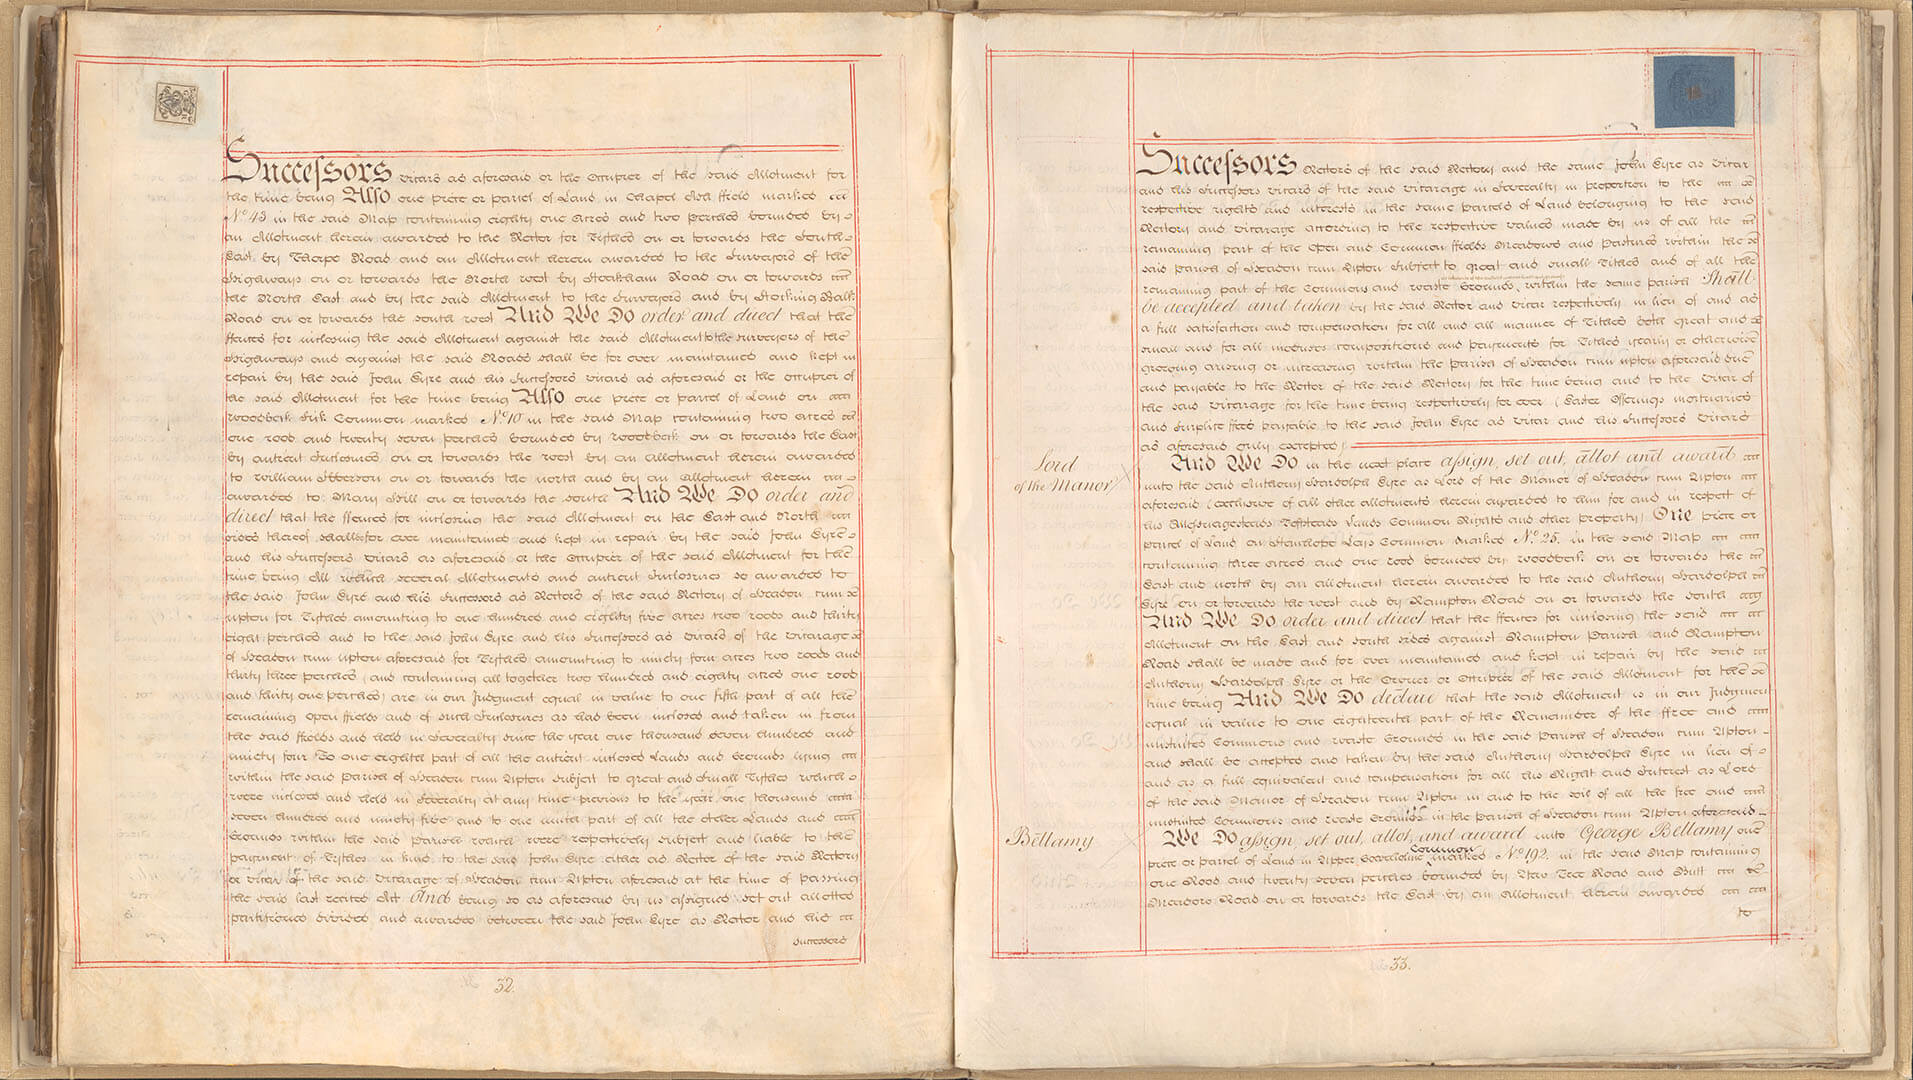 Successors Vicars as aforesaid or the Occupier of the said Allotment for
the time being Also one piece or parcel of Land in Chapel Ash ffield marked
No. 43 in the said Map containing eighty one Acres and two perches bounded by
an Allotment herein awarded to the Rector for Tithes on or towards the South
East by Thorpe Road and an Allotment herein awarded to the Surveyors of the
Highways on or towards the North West by Stokham Road on or towards
the North East and by the said Allotment to the Surveyors and by Stocking Balk
Road on or towards the south west And We Do order and direct that the
ffences for inclosing the said Allotment against the said Allotment to the surveyors of the
Highways and against the said Roads shall be for ever maintained and kept in
repair by the said John Eyre and his Successors Vicars as aforesaid or the Occupier of
the said Allotment for the time being Also one piece or parcel of Land on
Woodbeck Sick Common marked No. 10 in the said Map containing two acres
one rood and twenty seven perches bounded by Woodbeck on or towards the East
by antient Inclosures on or towards the west by an Allotment herein awarded
to William on or towards the north and by an Allotment herein
awarded to Mary Hill on or towards the south And We Do order and
direct that the ffences for inclosing the said Allotment on the East and North
sides thereof shall be for ever maintained and kept in repair by the said John Eyre
and his Successors Vicars as aforesaid or the Occupier of the said Allotment for the
time being All which several Allotments and antient Inclosures so awarded to
the said John Eyre and his Successors as Rectors of the said Rectory of Headon cum
Upton for Tithes amounting to one hundred and eighty five acres two roods and thirty
eight perches and to the said John Eyre and his Successors as Vicars of the Vicarage
of Headon cum Upton aforesaid for Tythes amounting to ninety four acres two roods and
thirty three perches (and containing all together two hundred and eighty acres one rood
and thirty one perches) are in our Judgment equal in value to one fifth part of all the
remaining open ffields and of such Inclosures as had been inclosed and taken in from
the said ffields and held in Severalty since the year one thousand seven hundred and
ninety four To one eighth part of all the antient inclosed Lands and Grounds lying
within the said Parish of Headon cum Upton Subject to great and Small Tithes which
were inclosed and held in Severalty at any time previous to the year one thousand
seven hundred and ninety five and to one ninth part of all the other Lands and
Grounds within the said Parish which were respectively subject and liable to the
payment of Tithes in kind to the said John Eyre either as Rector of the said Rectory
or Vicar of the said Vicarage of Headon cum Upton aforesaid at the time of passing
the said last recited Act And being so as aforesaid by us assigned set out allotted
partitioned divided and awarded between the said John Eyre as Rector and his
Successors
32.
Successors Rectors of the said Rectory and the same John Eyre as Vicar
and his Successors Vicars of the said Vicarage in Severalty in proportion to the
respective rights and interests in the same parcels of Land belonging to the said
Rectory and Vicarage according to the respective values made by us of all the
remaining part of the Open and Common ffields Meadows and Pastures within the
said Parish of Headon cum Upton Subject to great and small Tithes and of all the
remaining part of the Commons and waste Grounds within the same parish Shall
be accepted and taken by the said Rector and Vicar respectively in lieu of and as
a full satisfaction and compensation for all and all manner of Tithes both great and
small and for all moduses compositions and payments for Tithes yearly or otherwise
growing arising or increasing within the Parish of Headon cum Upton aforesaid due
and payable to the Rector of the said Rectory for the time being and to the Vicar of
the said Vicarage for the time being respectively for ever (Easter Offerings mortuaries
and Surplice ffees payable to the said John Eyre as Vicar and his Successors Vicars
as aforesaid only excepted)
Lord
of the Manor
And We Do in the next place assign, set out, allot and award
unto the said Anthony Hardolph Eyre as Lord of the Manor of Headon cum Upton
aforesaid (exclusive of all other allotments herein awarded to him for and in respect of
his Messuagesteads Toftsteads Lands Common Rights and other property) One piece or
parcel of Land on Stanhope Lays Common marked No. 25. in the said Map
containing three acres and one rood bounded by Woodbeck on or towards the
East and north by an allotment herein awarded to the said Anthony Hardolph
Eyre on or towards the west and by Rampton Road on or towards the south
And We Do order and direct that the ffences for inclosing the said
Allotment on the East and South sides against Rampton Parish and Rampton
Road shall be made and for ever maintained and kept in repair by the said
Anthony Hardolph Eyre or the Owner or Occupier of the said Allotment for the
time being And We Do declare that the said Allotment is in our Judgment
equal in value to one eighteenth part of the Remainder of the ffree and
unstinted Commons and waste Grounds in the said Parish of Headon cum Upton
and shall be accepted and taken by the said Anthony Hardolph Eyre in lieu of
and as a full equivalent and compensation for all his Right and Interest as Lord
of the said Manor of Headon cum Upton in and to the soil of all the free and
unstinted Commons and waste Grounds in the Parish of Headon cum Upton aforesaid
Bellamy
We Do assign, set out, allot, and award unto George Bellamy one
piece or parcel of Land in Upper Common marked No. 192. in the said Map containing
one Rood and twenty seven perches bounded by Yew Tree Road and Bull
Meadow Road on or towards the East by an Allotment herein awarded
to
33.